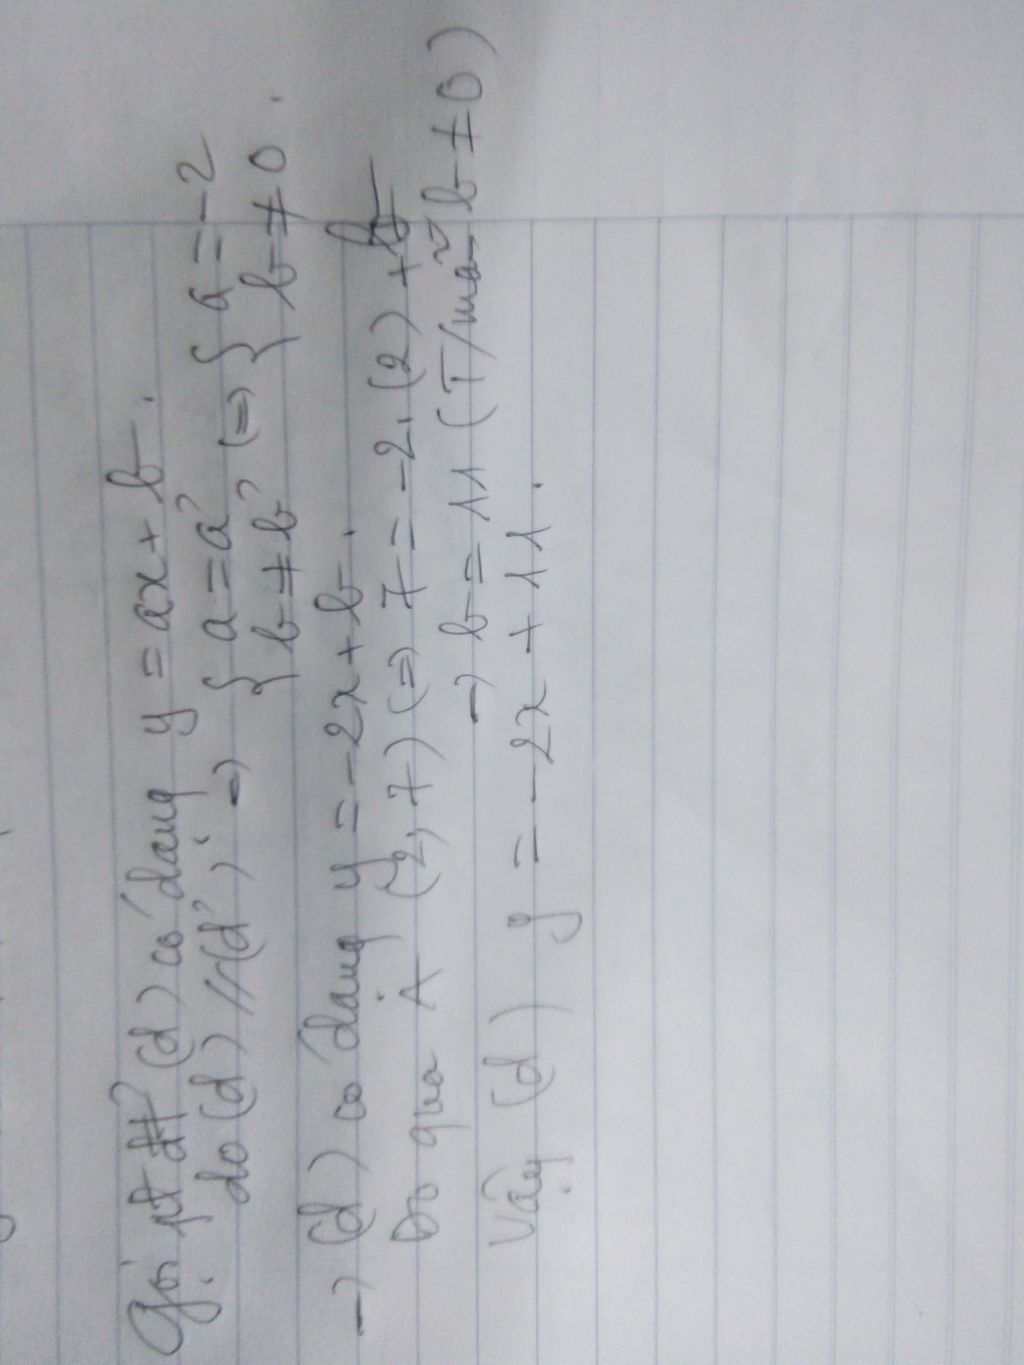 Gọi pt đt (d) có dạng y = ax + b.
do (d) // (d'), → { a = a' (=) { a = -2
{ b ≠ b' { b ≠ 0.
→ (d) có dạng y = -2x + b.
Do qua A (2, 7) (=) 7 = -2.(2) + b
→ b = 11 (T/mãn b ≠ 0)
Vậy (d) y = -2x + 11.